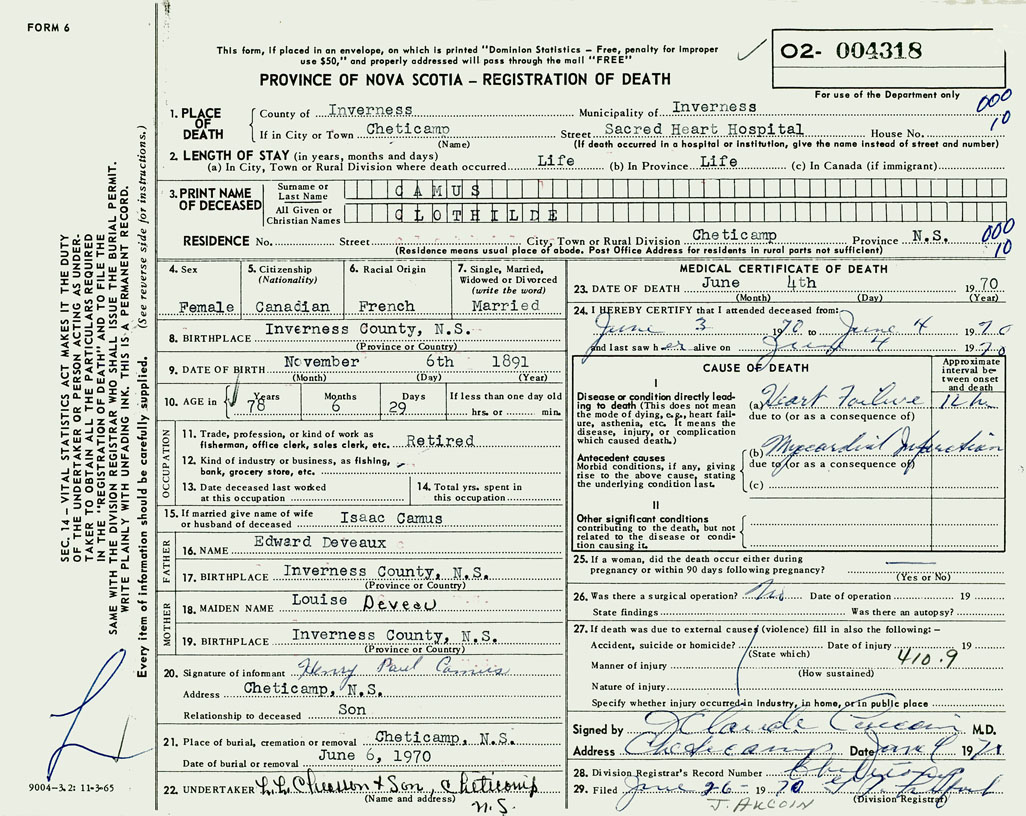 FORM 6
This form, if placed in an envelope, on which is printed "Dominion Statistics – Free, penalty for improper
use $50," and properly addressed will pass through the mail "FREE"
PROVINCE OF NOVA SCOTIA – REGISTRATION OF DEATH
02- 004318
For use of the Department only
000
10
1. PLACE OF DEATH
County of Inverness Municipality of Inverness
If in City or Town Cheticamp Street Sacred Heart Hospital House No.
(Name) (If death occurred in a hospital or institution, give the name instead of street and number)
2. LENGTH OF STAY (in years, months and days)
(a) In City, Town or Rural Division where death occurred Life (b) In Province Life (c) In Canada (if immigrant)
3. PRINT NAME OF DECEASED
Surname or Last Name CAMUS
All Given or Christian Names CLOTHILDE
RESIDENCE No. Street City, Town or Rural Division Cheticamp Province N.S.
(Residence means usual place of abode. Post Office Address for residents in rural parts not sufficient)
000
10
4. Sex
Female
5. Citizenship
(Nationality)
Canadian
6. Racial Origin
French
7. Single, Married,
Widowed or Divorced
(write the word)
Married
8. BIRTHPLACE Inverness County, N.S.
(Province or Country)
9. DATE OF BIRTH November 6th 1891
(Month) (Day) (Year)
10. AGE in Years Months Days If less than one day old
78 6 29 hrs. or min.
OCCUPATION
11. Trade, profession, or kind of work as
fisherman, office clerk, sales clerk, etc. Retired
12. Kind of industry or business, as fishing,
bank, grocery store, etc. -
13. Date deceased last worked
at this occupation
14. Total yrs. spent in
this occupation
15. If married give name of wife
or husband of deceased Isaac Camus
FATHER
16. NAME Edward Deveaux
17. BIRTHPLACE Inverness County, N.S.
(Province or Country)
MOTHER
18. MAIDEN NAME Louise Deveau
19. BIRTHPLACE Inverness County, N.S.
(Province or Country)
20. Signature of informant Henry Paul Camus
Address Cheticamp, N.S.
Relationship to deceased Son
21. Place of burial, cremation or removal Cheticamp, N.S.
Date of burial or removal June 6, 1970
22. UNDERTAKER L.L. Chiasson & Son, Cheticamp
(Name and address) N.S.
MEDICAL CERTIFICATE OF DEATH
23. DATE OF DEATH June 4th 1970
(Month) (Day) (Year)
24. I HEREBY CERTIFY that I attended deceased from:
June 3 1970 to June 4 1970
and last saw her alive on June 4 1970
CAUSE OF DEATH
Approximate
interval be-
tween onset
and death
I
Disease or condition directly lead-
ing to death (This does not
mean the mode of dying, e.g., heart fail-
ure, asthenia, etc. It means the
disease, injury, or complication
which caused death.)
(a) Heart Failure 12 hr
due to (or as a consequence of)
Antecedent causes
Morbid conditions, if any, giving
rise to the above cause, stating
the underlying condition last.
(b) Myocardial Infarction
due to (or as a consequence of)
(c)
II
Other significant conditions
contributing to the death, but not
related to the disease or condi-
tion causing it.
25. If a woman, did the death occur either during
pregnancy or within 90 days following pregnancy?
(Yes or No)
26. Was there a surgical operation? No Date of operation 19
State findings Was there an autopsy?
27. If death was due to external causes (violence) fill in also the following: –
Accident, suicide or homicide? Date of injury 19
(State which)
410.9
Manner of injury
(How sustained)
Nature of injury
Specify whether injury occurred in Industry, in home, or in public place
Signed by J Claude M.D.
Address Cheticamp Date
28. Division Registrar's Record Number
29. Filed June 26 - 1970
(Division Registrar)
J. AUCOIN
SEC. 14 – VITAL STATISTICS ACT MAKES IT THE DUTY
OF THE UNDERTAKER OR PERSON ACTING AS UNDER-
TAKER TO OBTAIN ALL THE PARTICULARS REQUIRED
IN THE "REGISTRATION OF DEATH" AND TO FILE THE
SAME WITH THE DIVISION REGISTRAR WHO SHALL ISSUE THE BURIAL PERMIT.
WRITE PLAINLY WITH UNFADING INK. THIS IS A PERMANENT RECORD.
Every item of information should be carefully supplied. (See reverse side for instructions.)
9004-3.2: 11-3-65